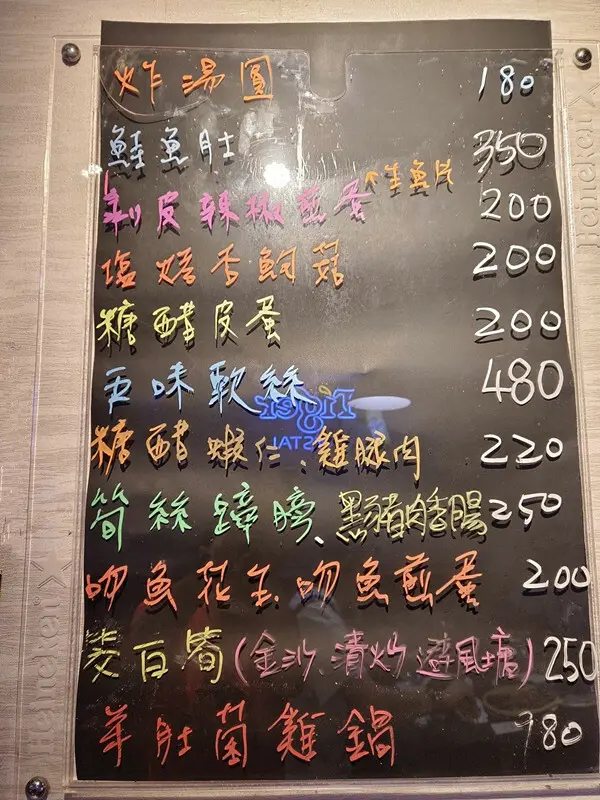 炸湯圓 180
鮭魚肚 350
↖生魚片
剥皮辣椒煎蛋 200
塩焗杏鮑菇 200
糖醋皮蛋 200
五味軟絲 480
糖醋蝦仁、雞腿肉 220
筍絲蹄膀、黑豬肉香腸 250
吻魚花生 吻魚煎蛋 200
茭白筍(金沙、清炒、避風塘) 250
羊肚菌雞鍋 980
Heineken
Heineken